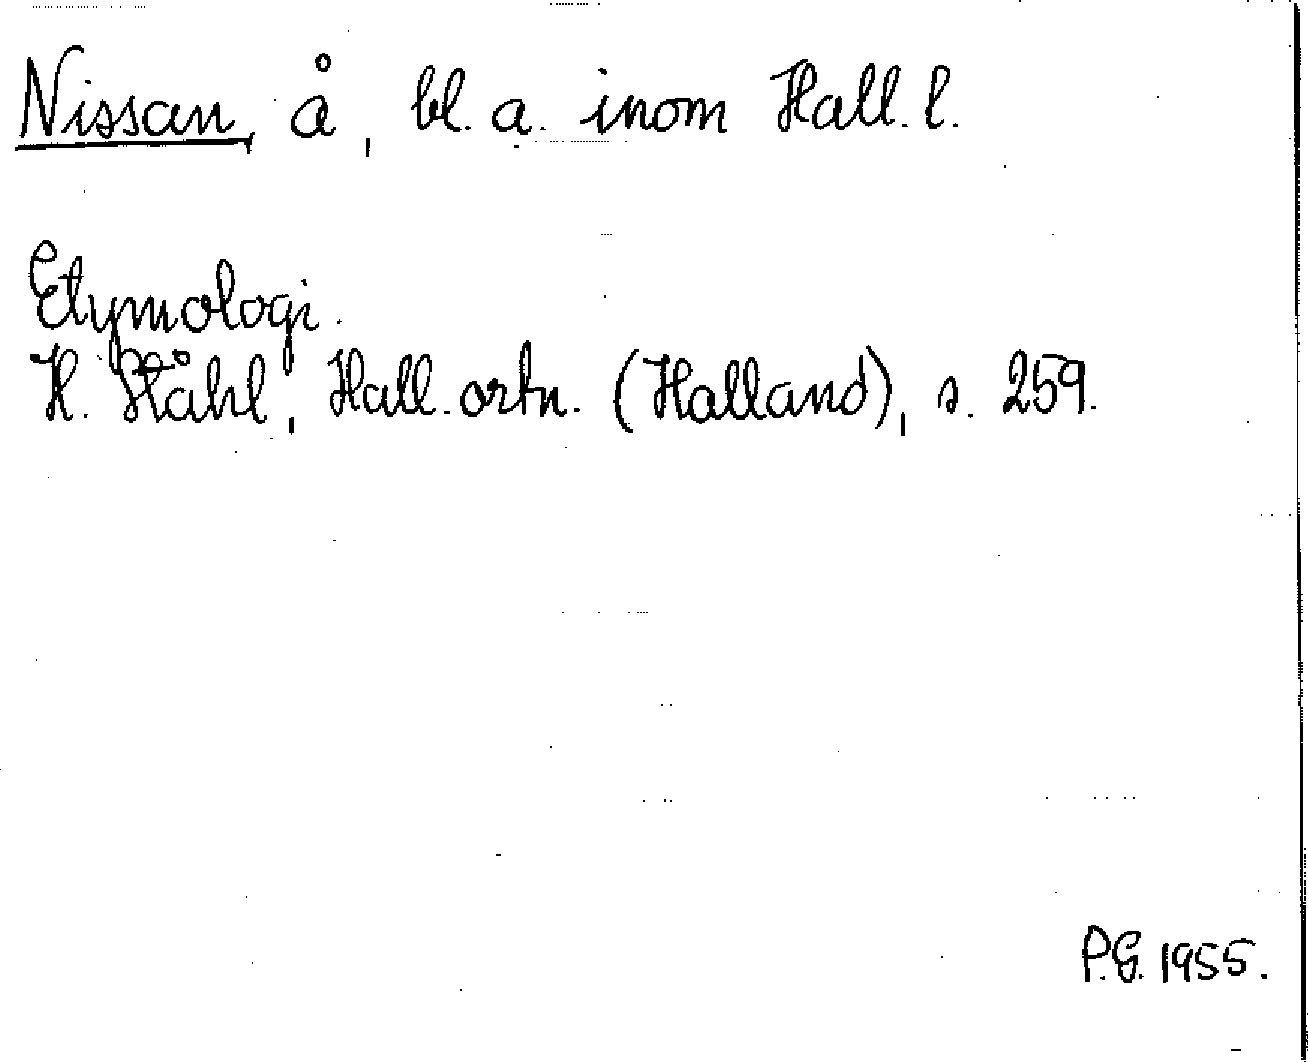 Nissan, å, bl. a. inom Hall. l.
Etymologi.
H. Ståhl, Hall. ortn. (Halland), s. 259.
P.G. 1955.